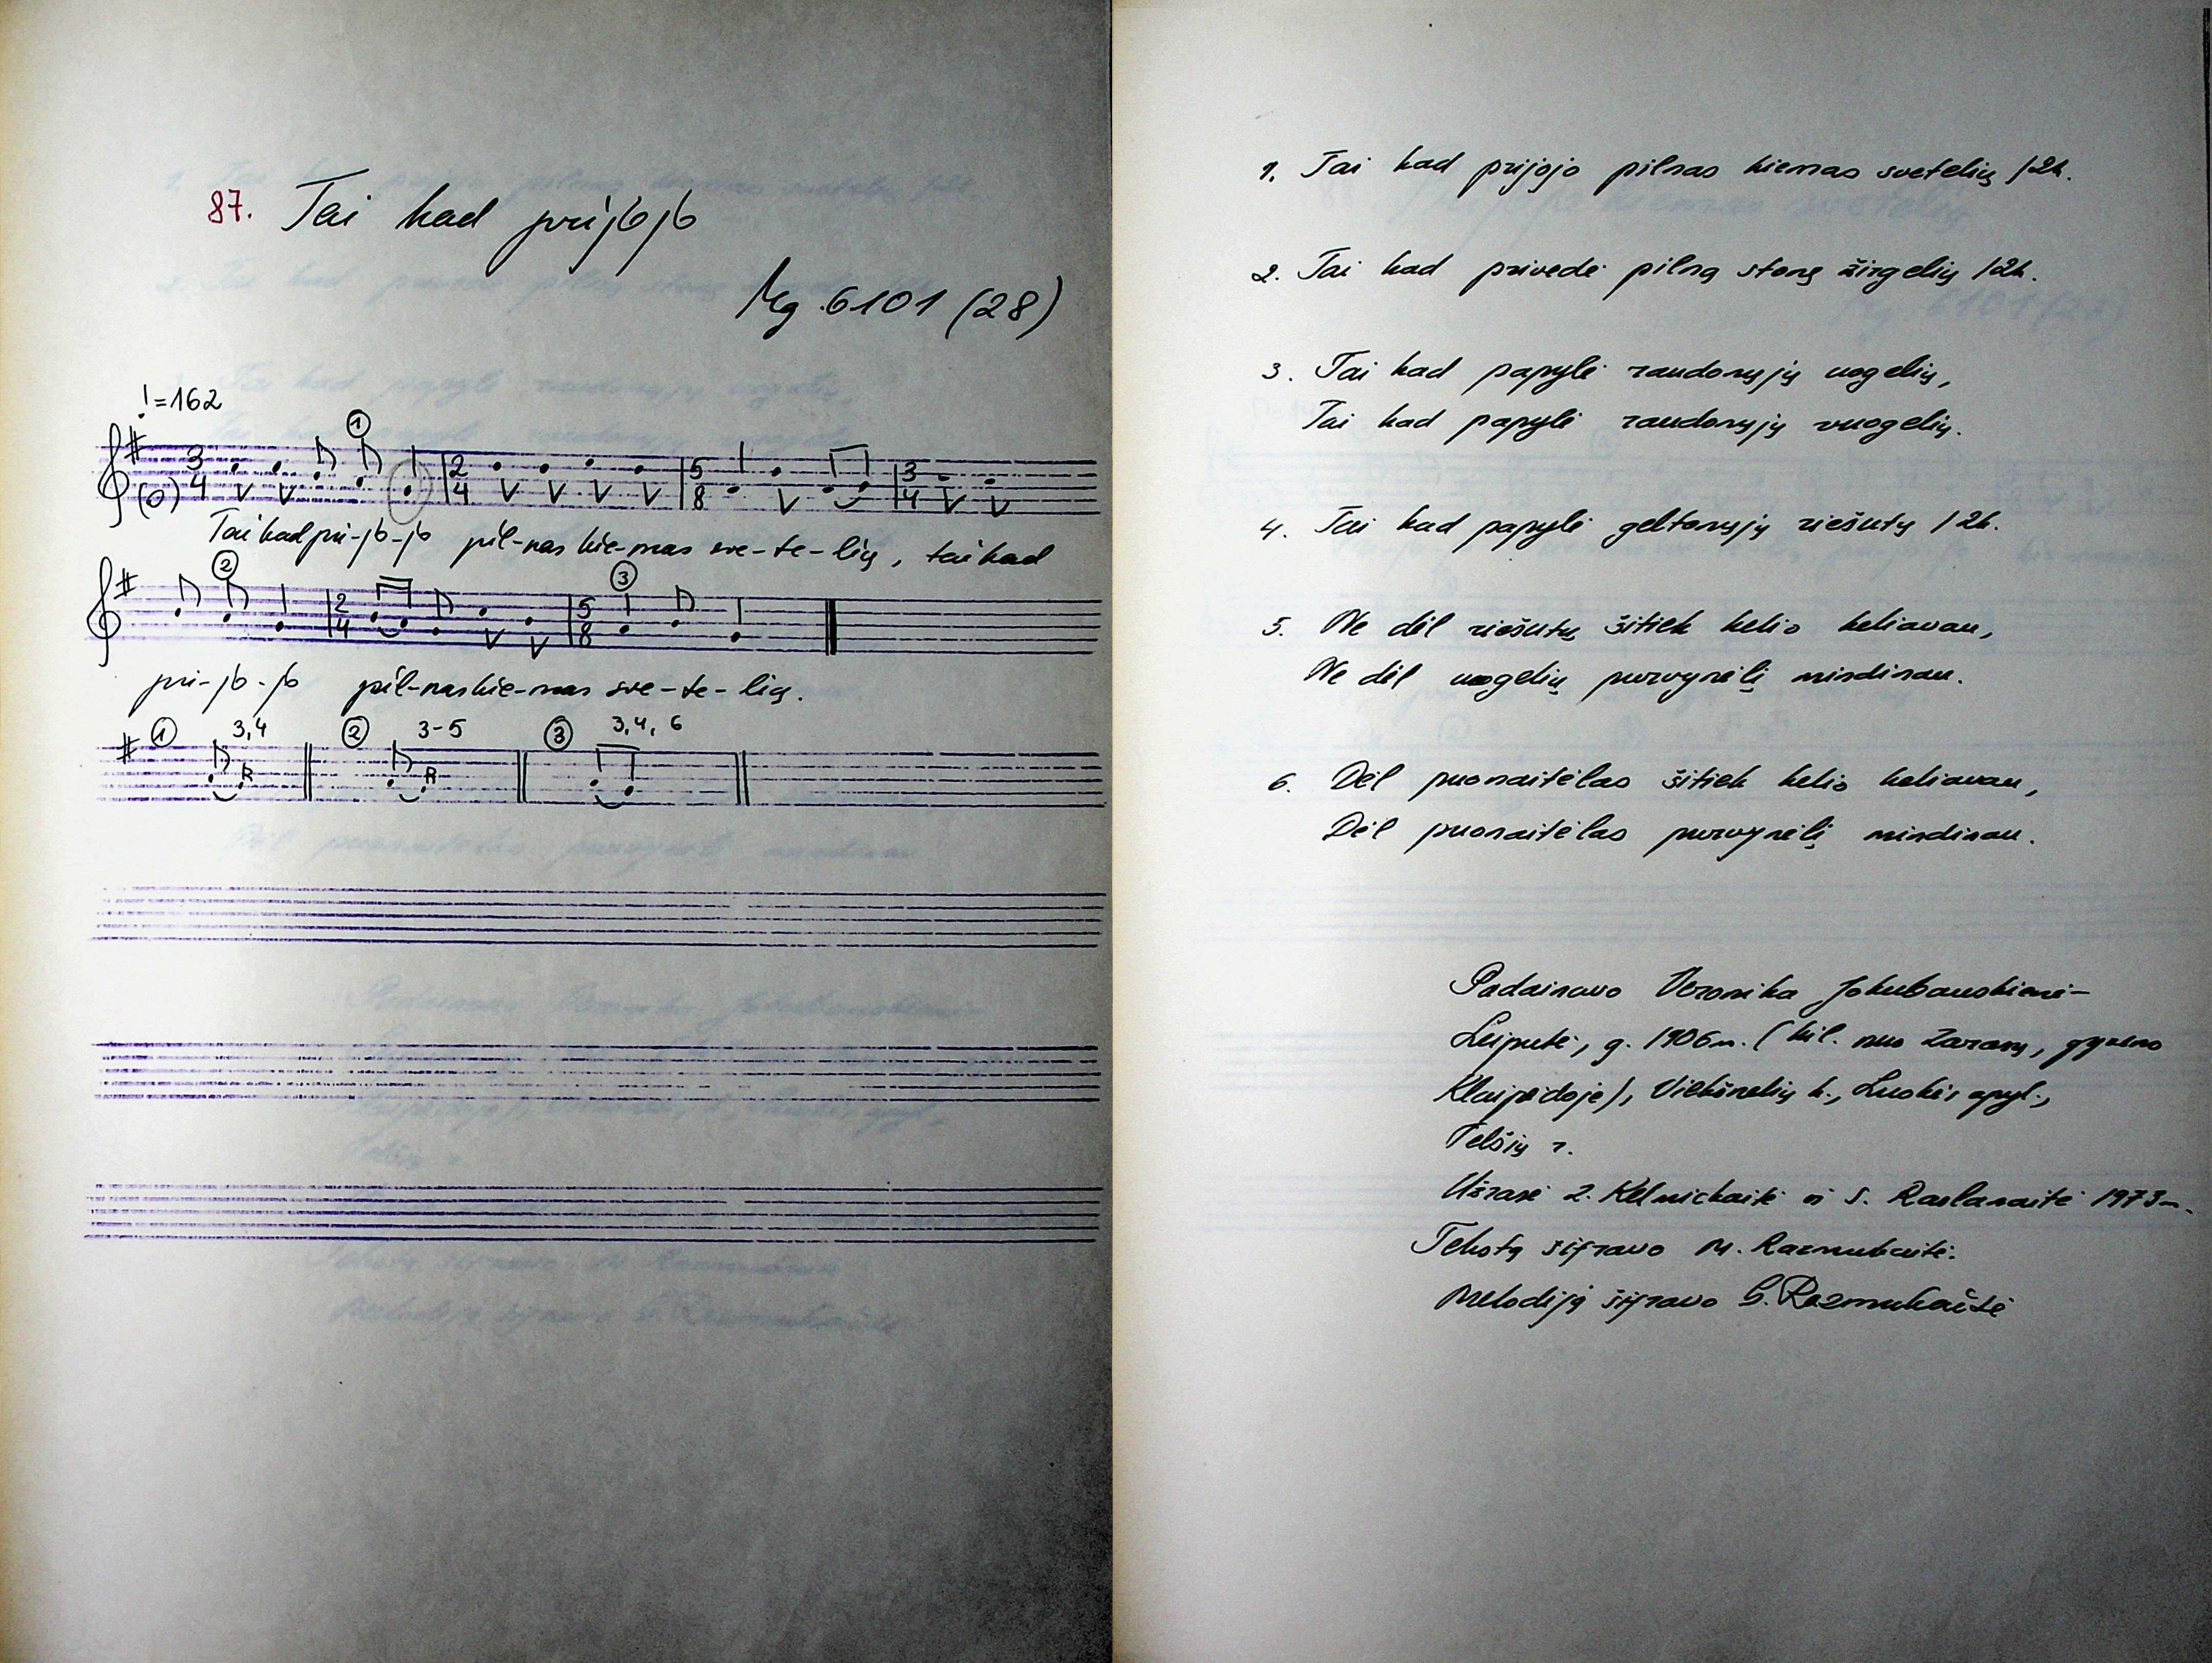 87. Tai kad prijojo
Mg. 6101 (28)
=162
3 4 2 4 5 8 3 4
Tai kad pri-jo-jo pil-nas kie-mas sve-te-lių, tai kad
2 4 5 8
pri-jo-jo pil-nas kie-mas sve-te-lių.
1 3,4 2 3-5 3 3,4,6
1. Tai kad prijojo pilnas kiemas svetelių /2k.
2. Tai kad privedė pilną stonę žirgelių /2k.
3. Tai kad papylė raudonųjų uogelių,
Tai kad papylė raudonųjų vuogelių.
4. Tai kad papylė geltonųjų riešutų /2k.
5. Ne dėl riešutų šitiek kelio keliavau,
Ne dėl uogelių purvynėlį mindinau.
6. Dėl puonaitėlas šitiek kelio keliavau,
Dėl puonaitėlas purvynėlį mindinau.
Padainavo Veronika Jokubauskienė-
Leiputė, g. 1906 m. (kil. nuo Zarasų, gyveno
Klaipėdoje), Viekšnelių k., Luokės apyl.,
Telšių r.
Užrašė Z. Kelmickaitė ir S. Raslanaitė 1973 m.
Tekstą šifravo M. Razmukaitė.
Melodiją šifravo G. Razmukaitė